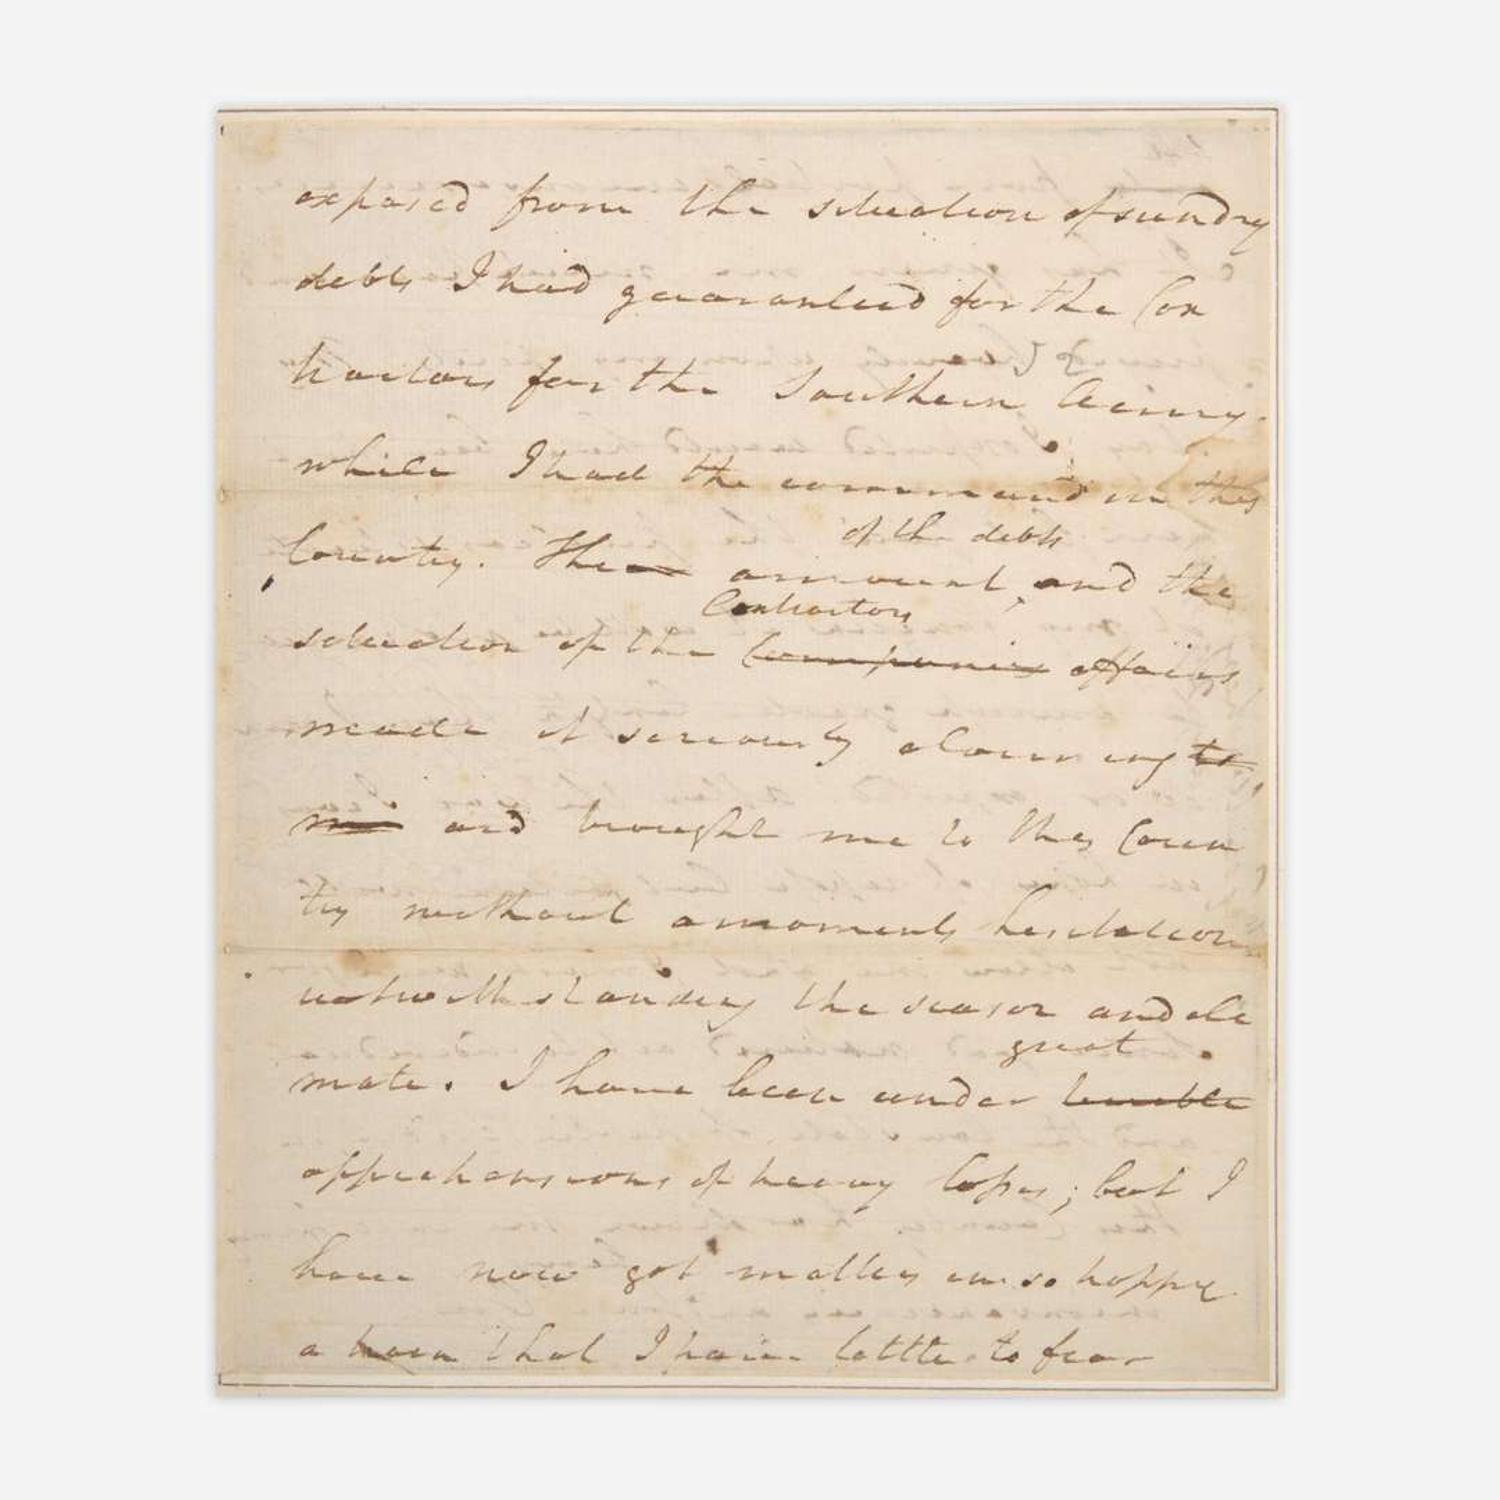 exposed from the situation of sundry
debts I had guaranteed for the Con
tractors for the Southern Army
while I had the command in this
of the debts
Country. The amount, and the
Contractors
situation of the Companies affairs
made it seriously alarming to
me and brought me to this Coun
try without a moments hesitation
notwithstanding the season and cli
great
mate. I have been under terrible
apprehensions of heavy losses; but I
have now got matters in so happy
a train that I have little to fear